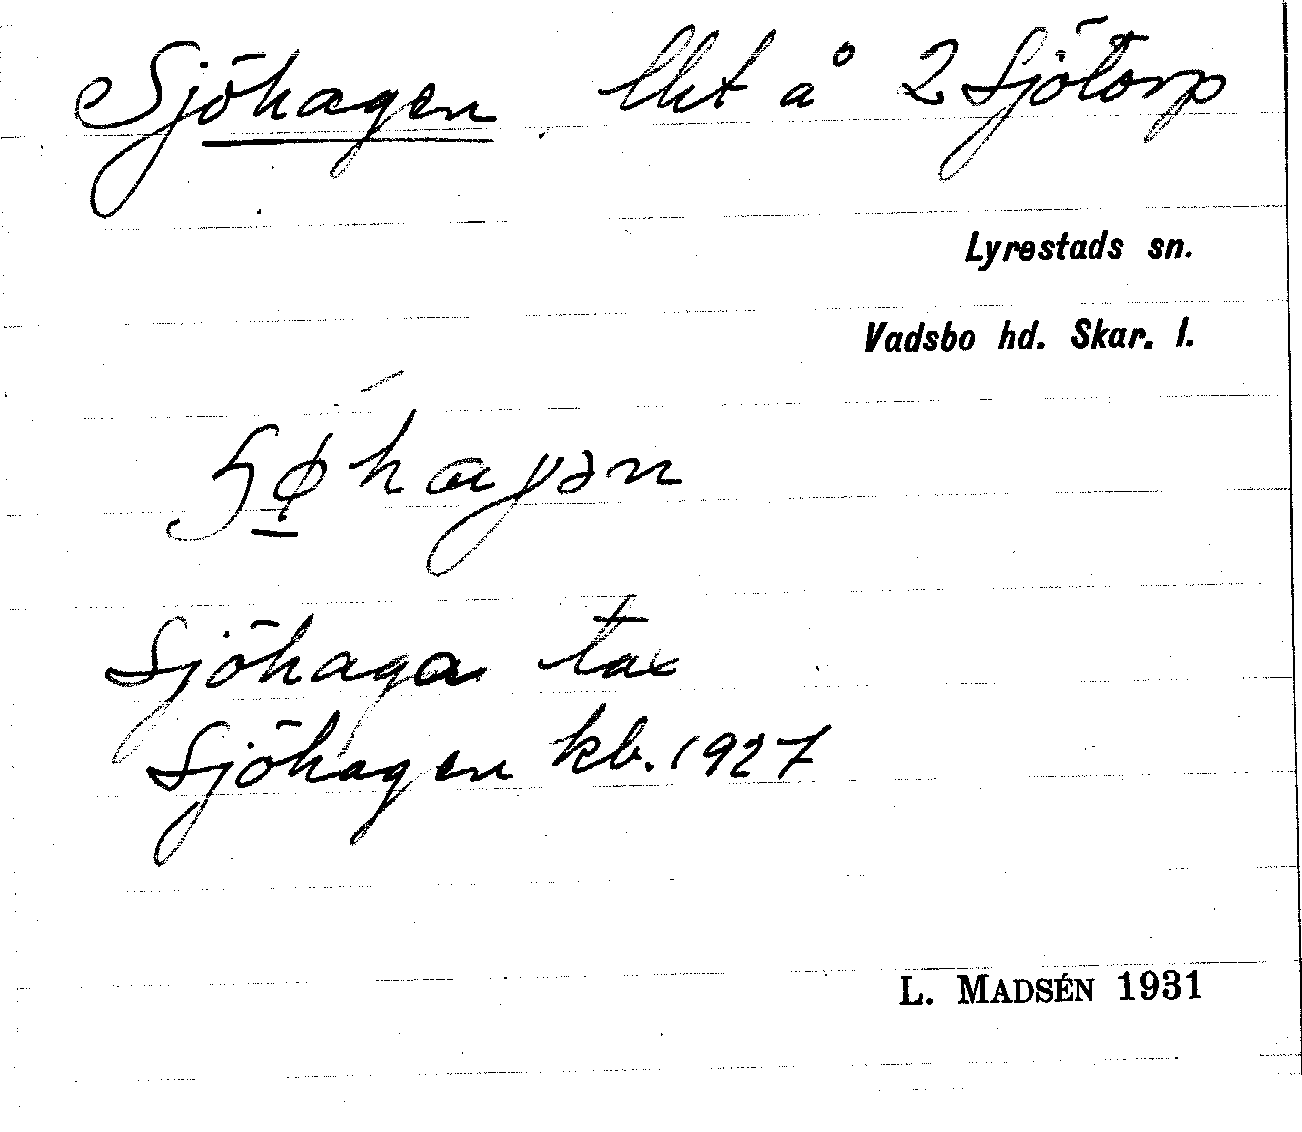 Sjöhagen lht å 2 Sjötorp
Lyrestads sn.
Vadsbo hd. Skar. l.
Sjöhagen
Sjöhaga tax
Sjöhagen kb. 1927
L. MADSÉN 1931